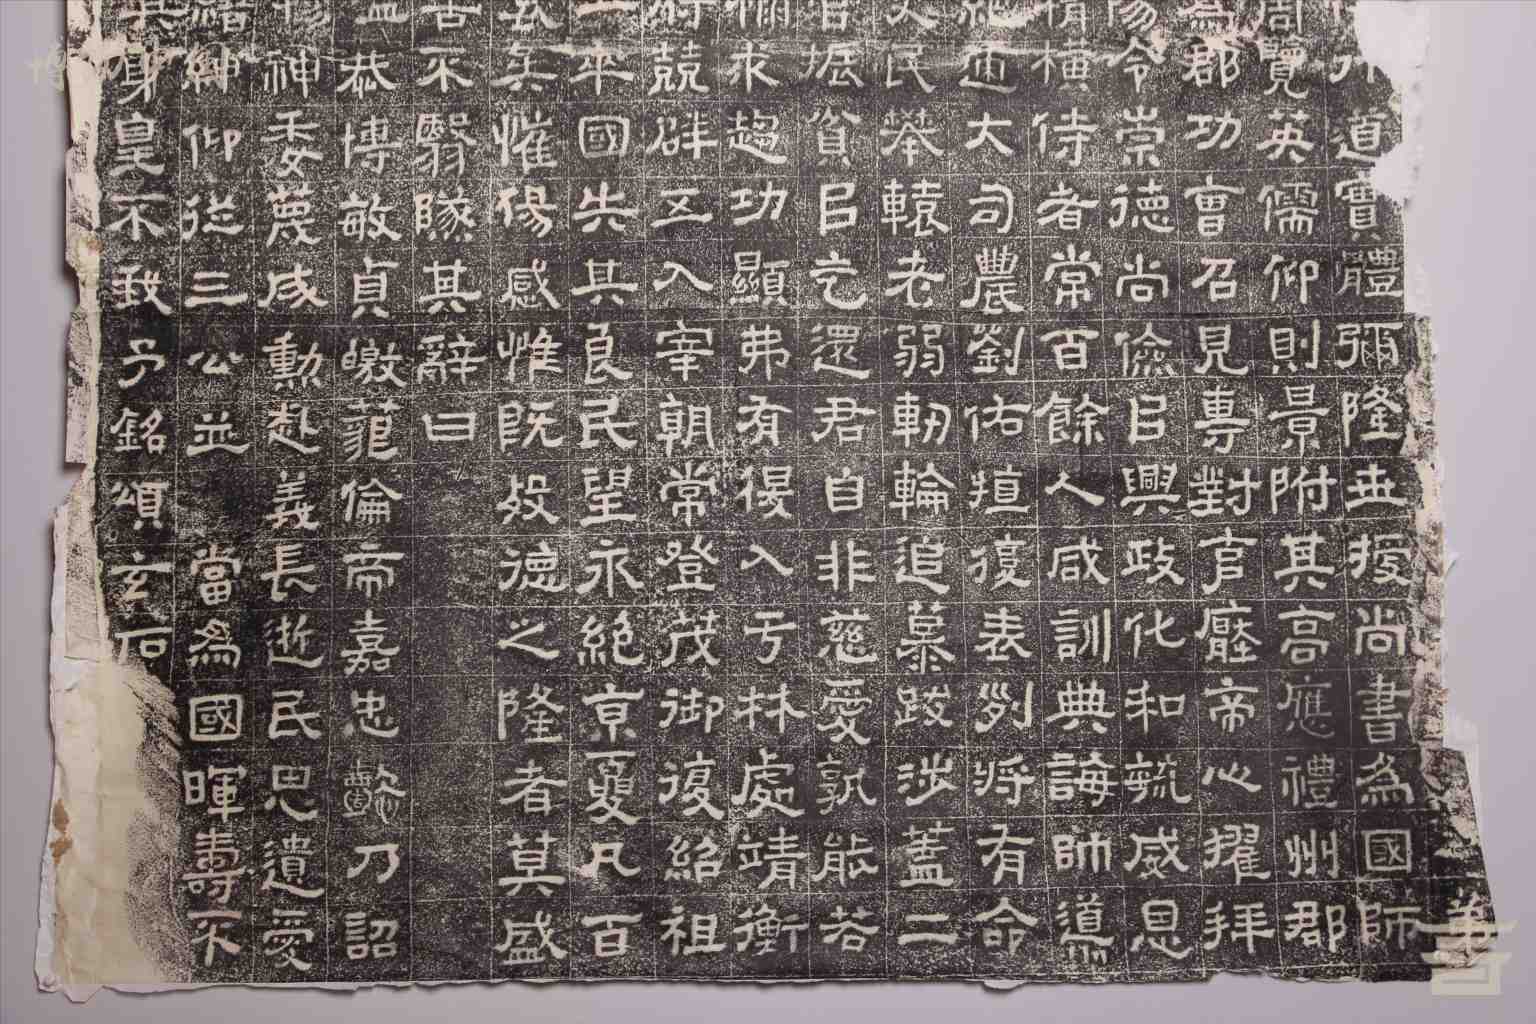 弟
行道實體彌隆世授尚書為國師
周覽英儒仰則景附其高應禮州郡
為郡功曹召見專對官廱帝心擢拜
陽令崇德尚儉以興政化和毓威恩
橫侍者常百餘人咸訓典誨師導
絕迺大司農劉佑桓復表列將有命
吏民攀轅老弱軔輪追慕跋涉蓋二
振貧以乞還君自非慈愛孰能若
脩求趨功顯弗有得入于林處靖衡
府競辟五入宰朝常登茂御復紹祖
二年國失其良民望永絕京夏凡百
玄矣慛傷感惟既歿德之隆者莫盛
不翳隧其辭曰
恭博敏貞皦倫帝嘉忠懿乃詔
神委蔑成勳赴義長逝民思遺愛
縉紳仰從三公並當為國暉壽不
其身皇不我予銘頌玄石